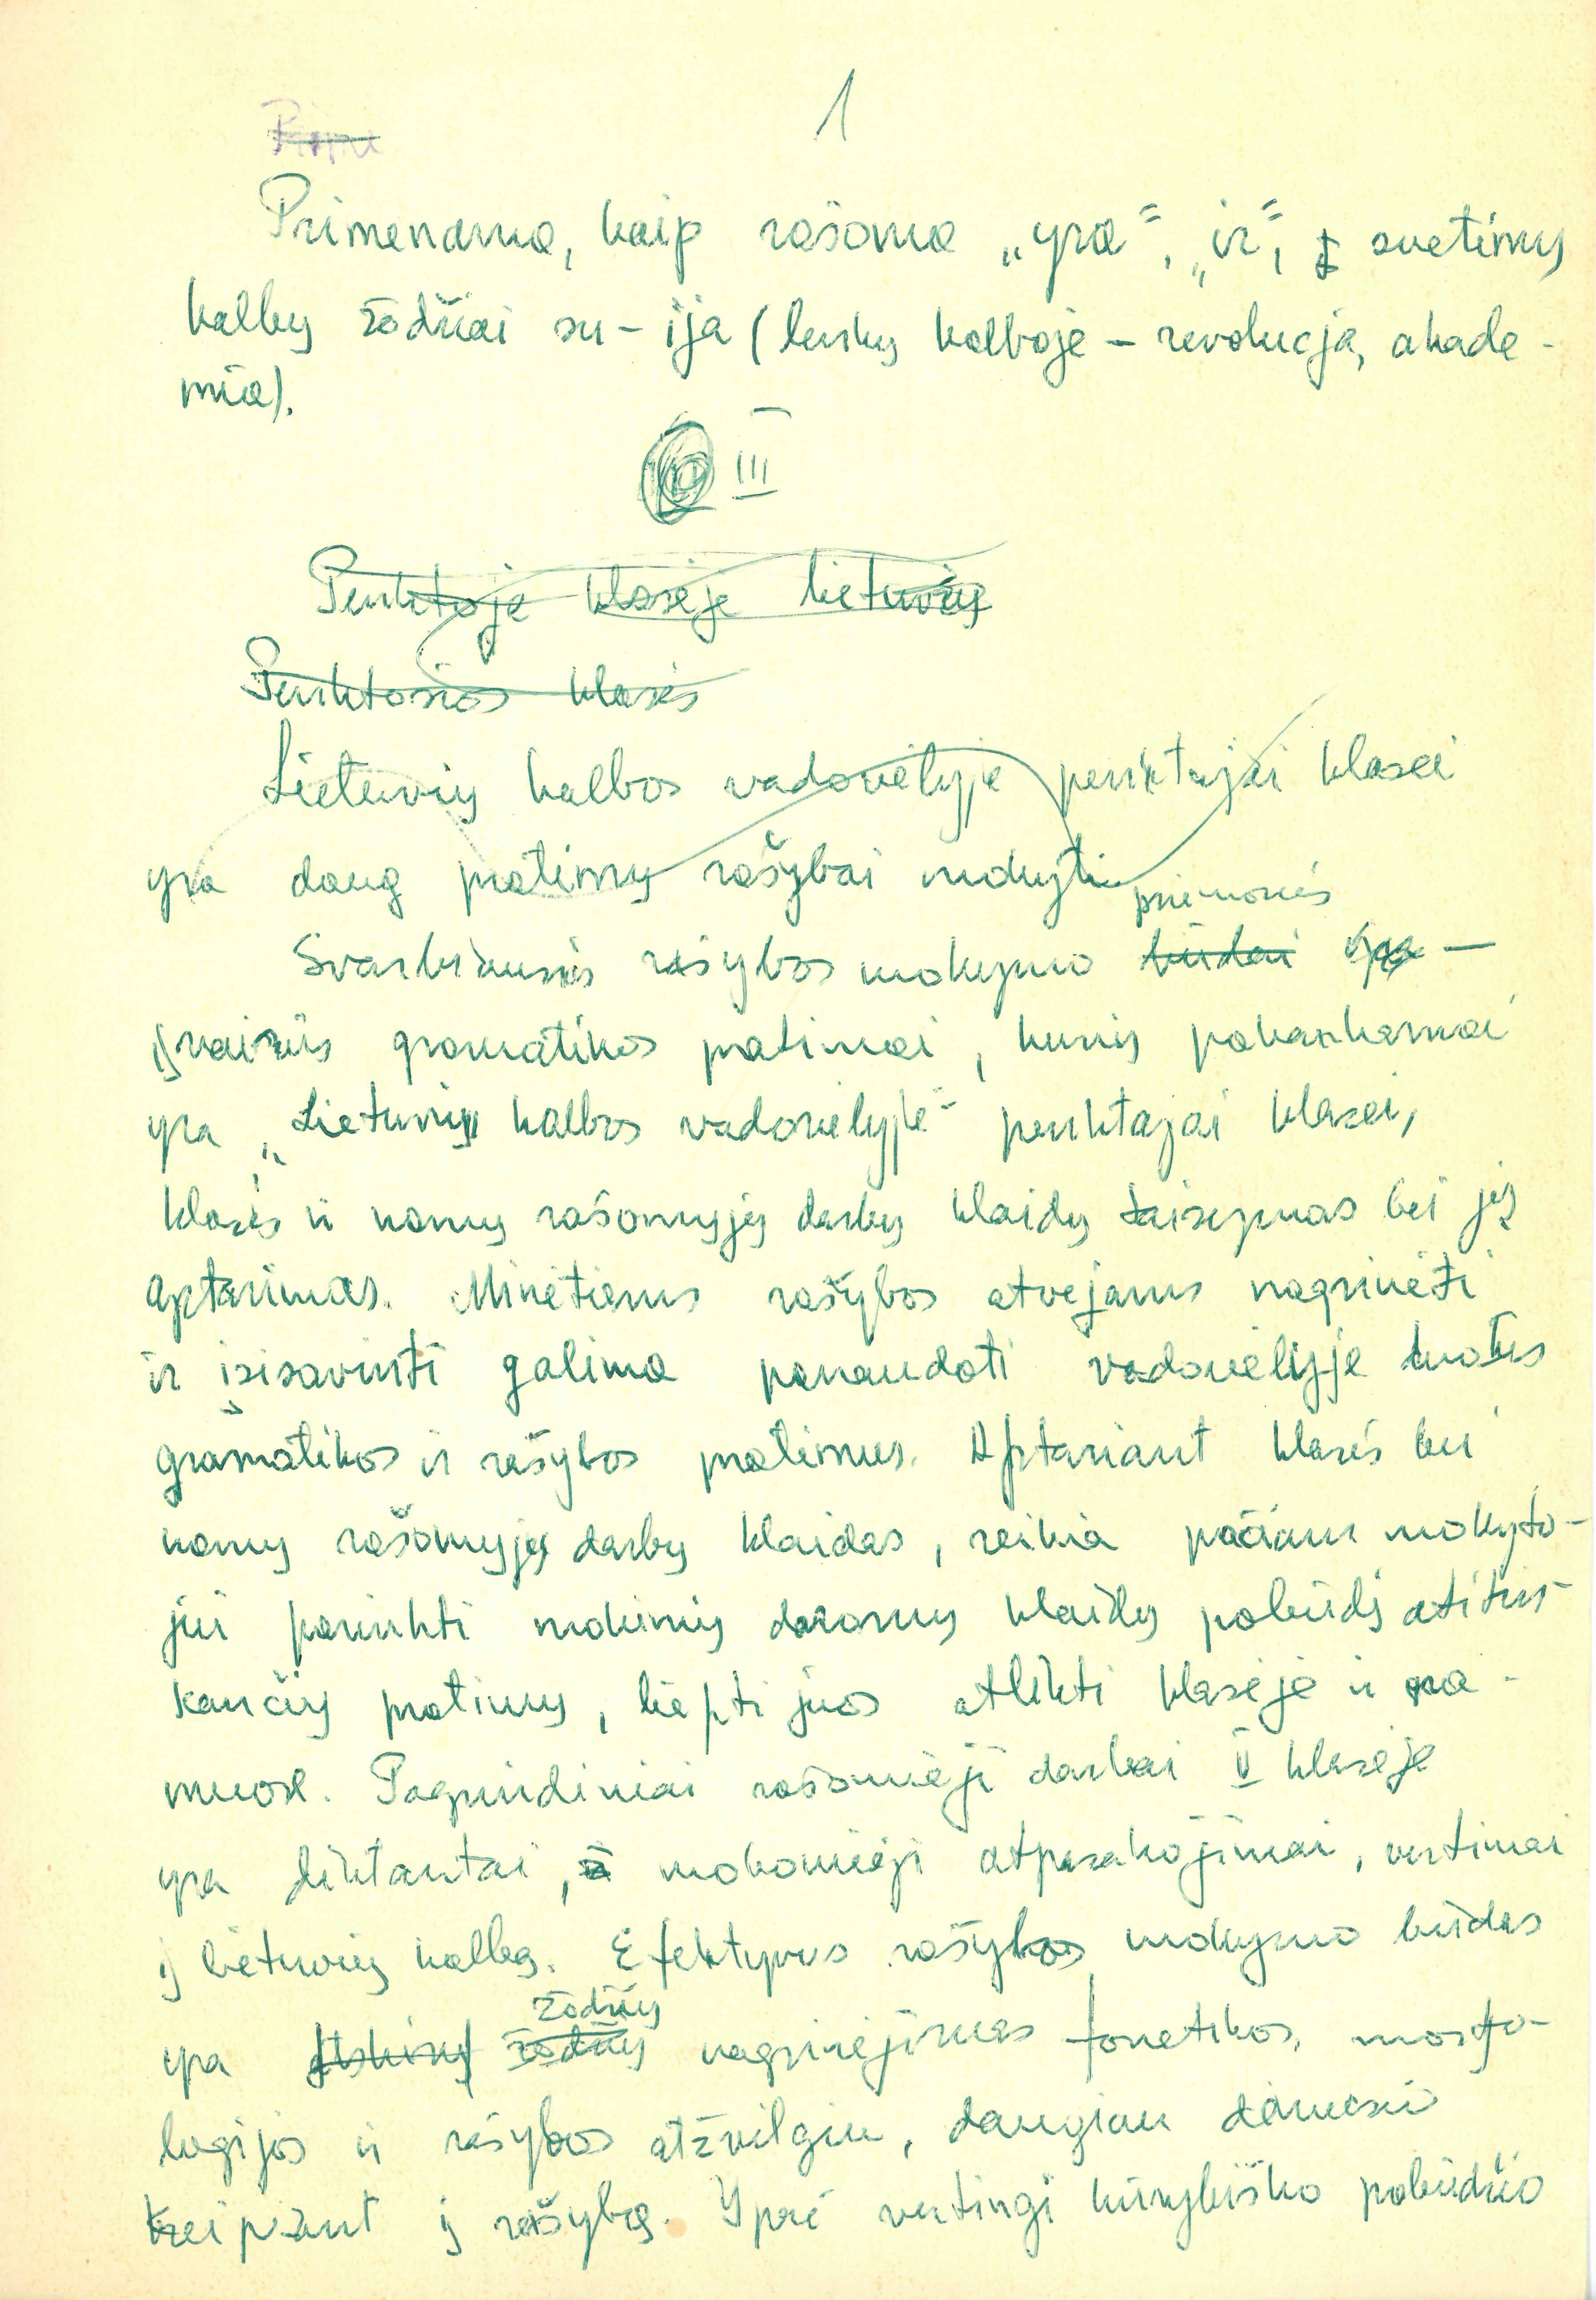 1
Primenama, kaip rašoma „yra“, „ir“, svetimų
kalbų žodžiai su -ija (lenkų kalboje – revolucja, akade-
mia).
III
Penktoje klasėje lietuvių
Penktosios klasės
Lietuvių kalbos vadovėlyje penktajai klasei
yra daug pratimų rašybai mokyti.
priemonės
Svarbiausios rašybos mokymo būdai yra –
įvairūs gramatikos pratimai, kurių pakankamai
yra „Lietuvių kalbos vadovėlyje“ penktajai klasei,
klasės ir namų rašomųjų darbų klaidų taisymas bei jų
aptarimas. Minėtiems rašybos atvejams nagrinėti
ir įsisavinti galima panaudoti vadovėlyje duotus
gramatikos ir rašybos pratimus. Aptariant klasės bei
namų rašomųjų darbų klaidas, reikia pačiam mokyto-
jui parinkti mokinių daromų klaidų pobūdį atitin-
kančių pratimų, liepti juos atlikti klasėje ir na-
muose. Pagrindiniai rašomieji darbai V klasėje
yra diktantai, mokomieji atpasakojimai, vertimai
į lietuvių kalbą. Efektyvus rašybos mokymo būdas
žodžių
yra atskirų žodžių nagrinėjimas fonetikos, morfo-
logijos ir rašybos atžvilgiu, daugiau dėmesio
kreipiant į rašybą. Ypač vertingi kūrybiško pobūdžio